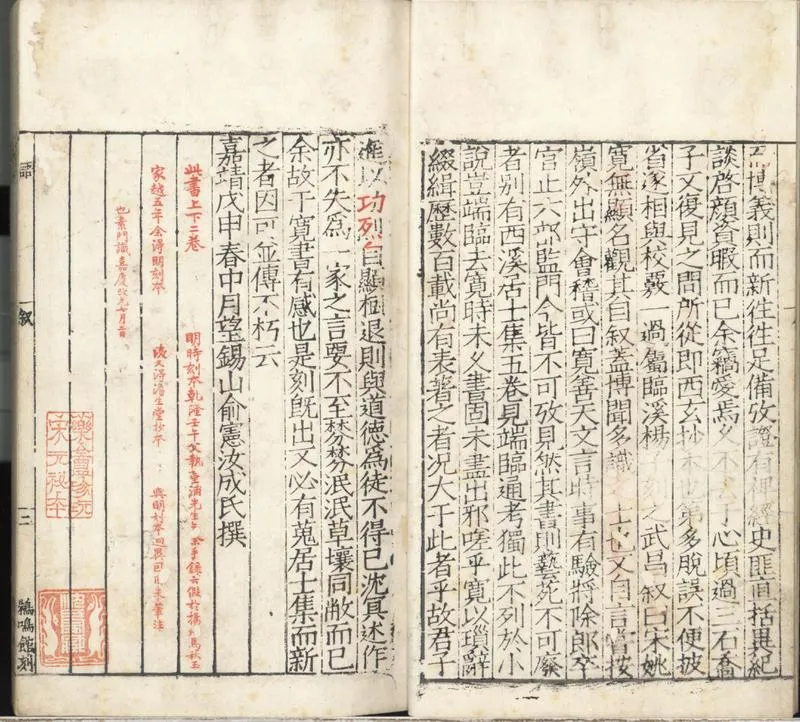 博義則而新徃徃足備攷證有裨經史匪直拈異紀
談啓顔資暇而已余竊愛焉久不去于心頃過三石喬
子文復見之問所從即西玄抄本也第多脫誤不便披
省遂相與校覈一過鑴臨溪楊子刻之武昌叙曰宋姚
寬無顯名觀其自叙蓋博聞多識之士也又自言嘗按
嶺外出守會稽或曰寬善天文言時事有驗將除郎卒
官止六部監門今皆不可攷見然其書則藝苑不可廢
者别有西溪居士集五卷見端臨通考獨此不列於小
說豈端臨去寬時未久書固未盡出邪嗟乎寬以瑣辭
綴緝歷數百載尚有表著之者况大于此者乎故君子
進以功烈自顯榲退則與道德爲徒不得已沈冥述作
亦不失爲一家之言要不至棼棼泯泯草壤同敝而已
余故于寬書有感也是刻旣出又必有蒐居士集而新
之者因可並傳不朽云
嘉靖戊申春中月望錫山俞憲汝成氏撰
此書上下二卷
明時刻本乾隆壬午父執
家越五年余得明刻本
後又得澹生堂抄本
與明刻本迥異因以朱筆注
也素門識嘉慶改元七月
叙
二
鵜鳴館刻